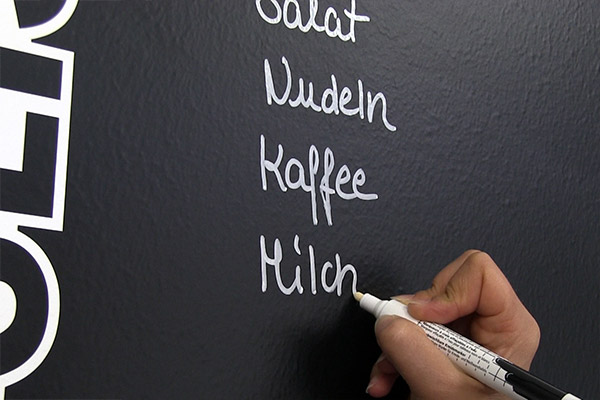 Salat
Nudeln
Kaffee
Milch